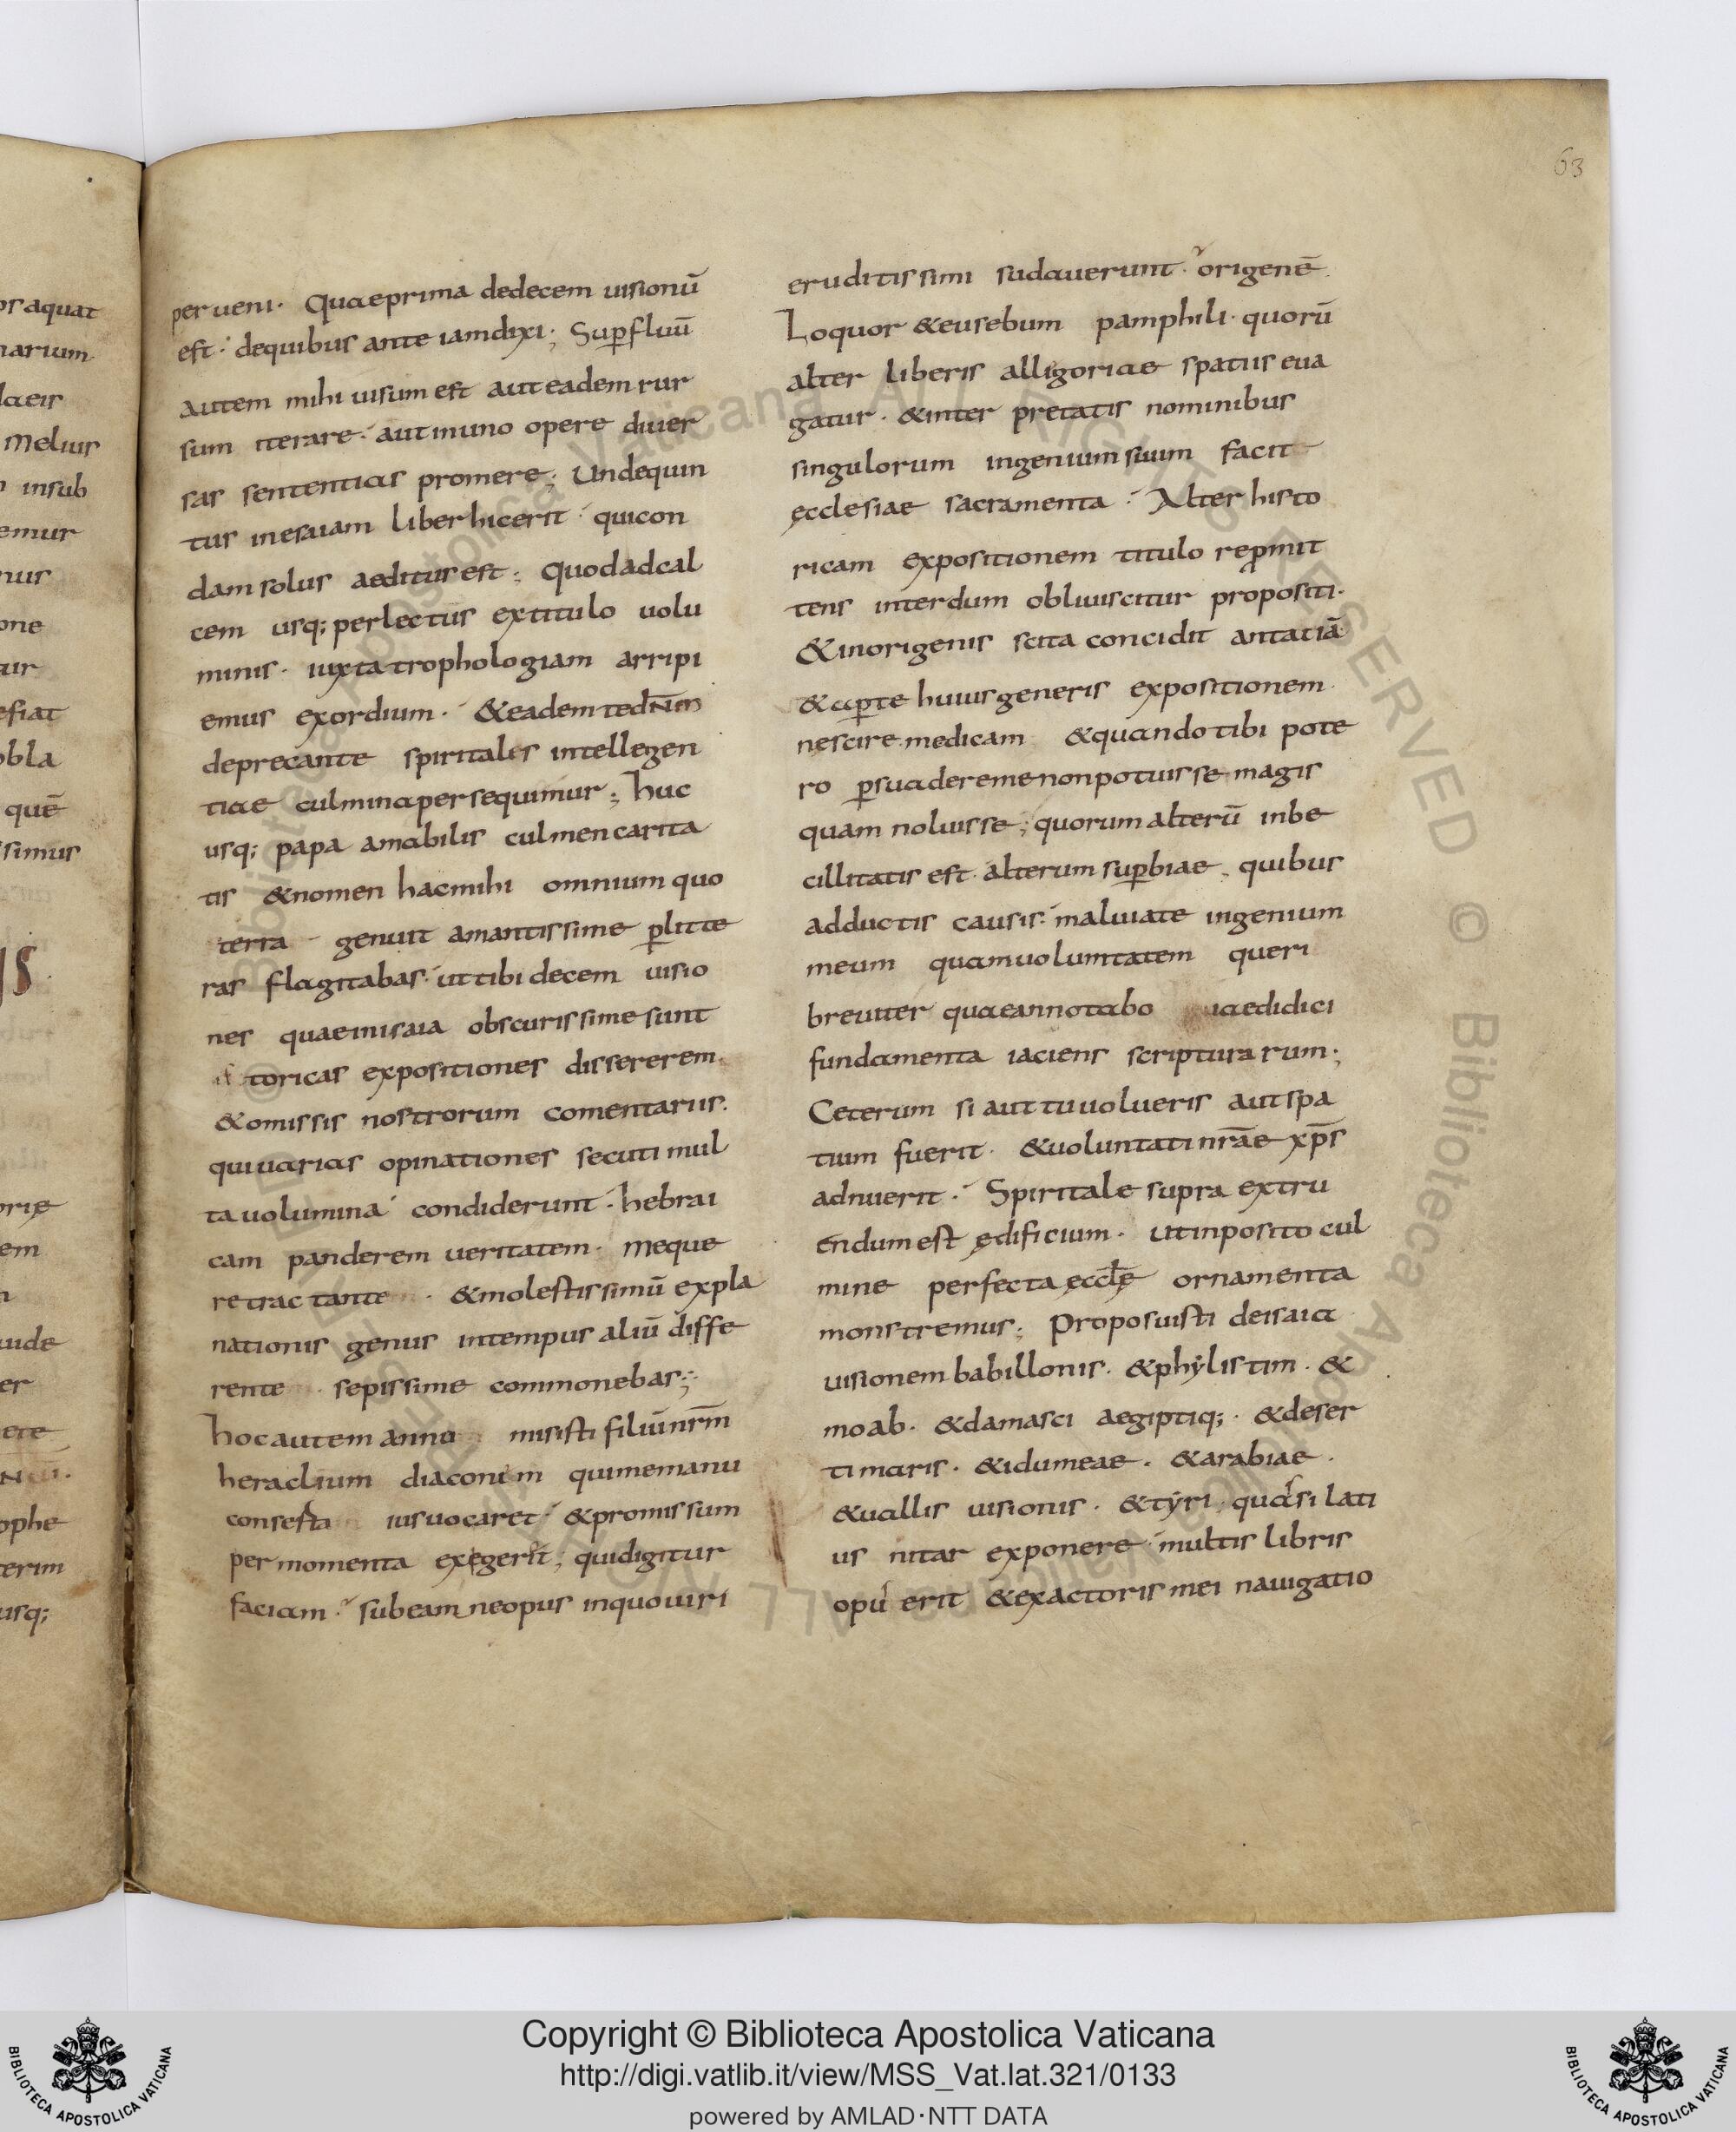 or aquat
narium
laeis
melius
n insub
emur
nus
one
tur
efiat
obla
quē
simus
JS
orię
em
n
uide
er
ete
ophe
terim
usq;
63
perueni. Quaeprima dedecem uisionū
est. dequibus ante iamdixi; Supfluū
autem mihi uisum est aut eadem rur
sum iterare. aut inuno opere diuer
sas sententias promere; Undequin
tus inesaiam liber hicerit quicon
dam solus aeditus est; Quodadcal
cem usq; perlectus extitulo uolu
minis. iuxta trophologiam arripi
emus exordium. &eadem tedNm
deprecante spiritalis intellegen
tiae culmina persequimur; huc
usq; papa amabilis culmen carita
tis &nomen hacmihi omnium quo
terra genuit amantissime plitte
ras flagitabas. ut tibi decem uisio
nes quaeinisaia obscurissime sunt
toricas expositiones dissererem.
&omissis nostrorum comentariis.
qui uarias opinationes secuti mul
ta uolumina condiderunt. hebrai
cam panderem ueritatem. meque
retrac tante . &molestissimū expla
nationis genus intempus aliū diffe
rente sepissime commonebas;
hocautem anno misisti filiū nrm̄
heraclium diaconum quimemanu
conserta ius uocaret &promissum
per momenta exegerit; quidigitur
faciam. subeam neopus inquouiri
eruditissimi sudauerunt. origenē.
Loquor &eusebum pamphili. quorū
alter liberis alligoriae spatiis eua
gatur. &inter pretatis nominibus
singulorum ingenium suum facit
ecclesiae sacramenta. Alter histo
ricam expositionem titulo repmit
tens interdum obliuiscitur propositi.
&inorigenis scita concidit antatiā
&apte huius generis expositionem.
nescire. medicam &quando tibi pote
ro psuaderemenonpotuisse. magis
quam noluisse; quorum alterū inbe
cillitatis est. alterum supbiae. quibus
adductis causis. maluiate ingenium
meum quamuoluntatem queri
breuiter quaeannotabo uaedidici
fundamenta iaciens scripturarum;
Ceterum si aut tu uolueris aut spa
tium fuerit. &uoluntati nrāe xp̄s
adnuerit. Spiritale supra extru
endum est ędificium. ut inposito cul
mine perfecta ęccłę ornamenta
monstremus; Proposuisti deisaia
uisionem babillonis. &phylistim. &
moab. &damasci aegiptiq;. &deser
ti maris. &idumeae. &arabiae.
&uallis uisionis. &tyri. quasi lati
us nitar exponere multis libris
opus erit &exactoris mei nauigatio
Copyright © Biblioteca Apostolica Vaticana
http://digi.vatlib.it/view/MSS_Vat.lat.321/0133
powered by AMLAD·NTT DATA
BIBLIOTECA APOSTOLICA VATICANA
BIBLIOTECA APOSTOLICA VATICANA